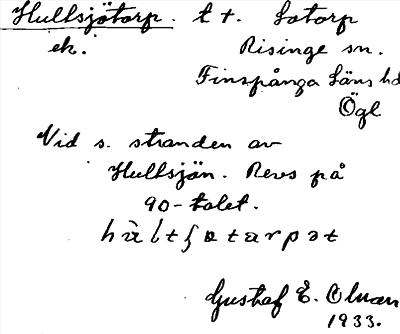 Hultsjötorp. t t. Lotorp
ek. Risinge sn.
Finspånga läns hd
Ögl
Vid s. stranden av
Hultsjön. Revs på
90-talet.
Gustaf E. Olman
1933.